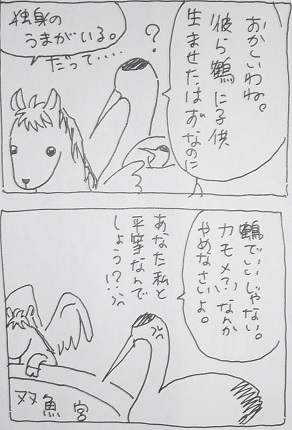 おかしいわね。
彼ら鶴に子供
生ませたはずなのに
?
独身の
うまがいる。
だって……
鶴でいいじゃない。
カモメ(?)なんか
やめなさいよ。
あなた私と
平等なんで
しょう!?
双魚宮